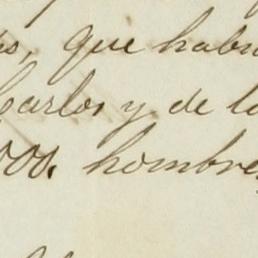 que habi
Carlos y de la
000. hombre